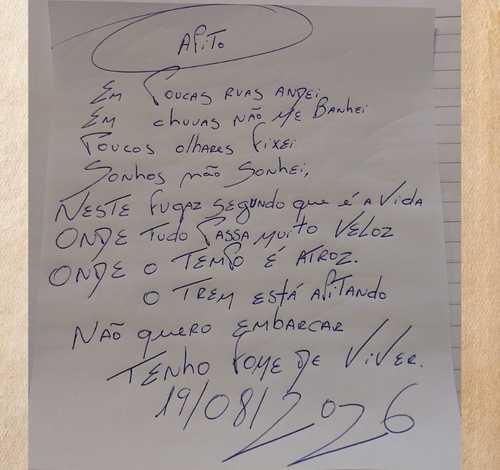 APITO
Em Poucas ruas andei
Em chuvas não me Banhei
Poucos olhares fixei
Sonhos não Sonhei,
Neste fugaz segundo que é a vida
Onde tudo Passa muito veloz
Onde o tempo é atroz.
o trem está apitando
Não quero embarcar
Tenho fome de viver.
19/08/2026